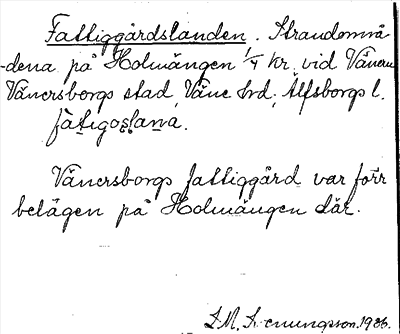 Fattiggårdslanden. Strandområ-
-dena på Holmängen 1/4 kr. vid Vänern
Vänersborgs stad, Väne hrd, Älfsborgs l.
fàtigoșlana.
Vänersborgs fattiggård var förr
belägen på Holmängen där.
1936.